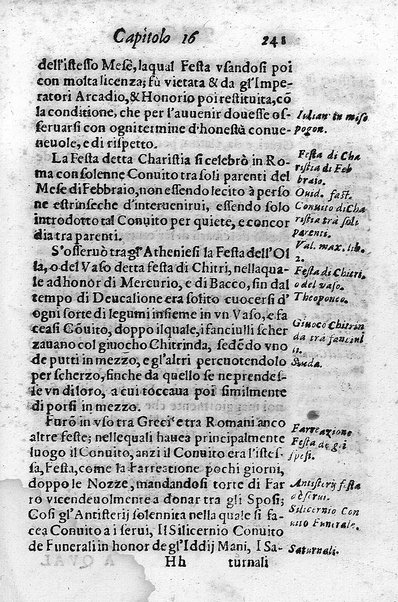 Capitolo 16 241
dell'istesso Mese, laqual Festa vsandosi poi
con molta licenza; fù vietata & da gl'Impe-
ratori Arcadio, & Honorio poi restituita, cõ
la conditione, che per l'auuenir douesse os-
seruarsi con ogni termine d'honestà conue-
neuole, e di rispetto.
La Festa detta Charistia si celebrò in Ro-
ma con solenne Conuito tra soli parenti del
Mese di Febbraio, non essendo lecito à perso
ne estrinseche d'interuenirui, essendo solo
introdotto tal Conuito per quiete, e concor
dia tra parenti.
S'osseruò tra gl'Atheniesi la Festa dell'Ol
la, o del Vaso detta festa di Chitri, nellaqua-
le ad honor di Mercurio, e di Bacco, fin dal
tempo di Deucalione era solito cuocersi d'
ogni sorte di legumi insieme in vn Vaso, e fa
ceasi Cõuito, doppo ilquale, i fanciulli scher
zauano col giuocho Chitrinda, sedẽdo vno
de putti in mezzo, e gl'altri percuotendolo
per scherzo, finche da quello se ne prendes-
se vn di loro, a cui toccaua poi similmente
di porsi in mezzo.
Furõ in vso tra Greci e tra Romani anco
altre feste; nellequali hauea principalmente
luogo il Conuito, anzi il Conuito era l'istes-
sa, Festa, come la Farreatione pochi giorni,
doppo le Nozze, mandandosi torte di Far
ro vicendeuolmente a donar tra gli Sposi;
Cosi gl'Antisterij solennita nella quale si fa-
cea Conuito a i serui, Il Silicernio Conuito
de Funerali in honor de gl'Iddij Mani, I Sa-
Hh turnali
Iulian in miso
pogon.
Festa di Cha
ristia di Feb
braio.
Ouid. fast.
Conuito di Cha
ristia trà soli
parenti.
Val. max. lib.
2.
Festa di Chitri,
o del vaso.
Theoponto.
Giuoco Chitrin
da tra fanciul
li.
Suida.
Farreazione
Festa de gli
spesi.
Antisterij festa
de serui.
Silicernio Con
uito Funerale.
Saturnali.